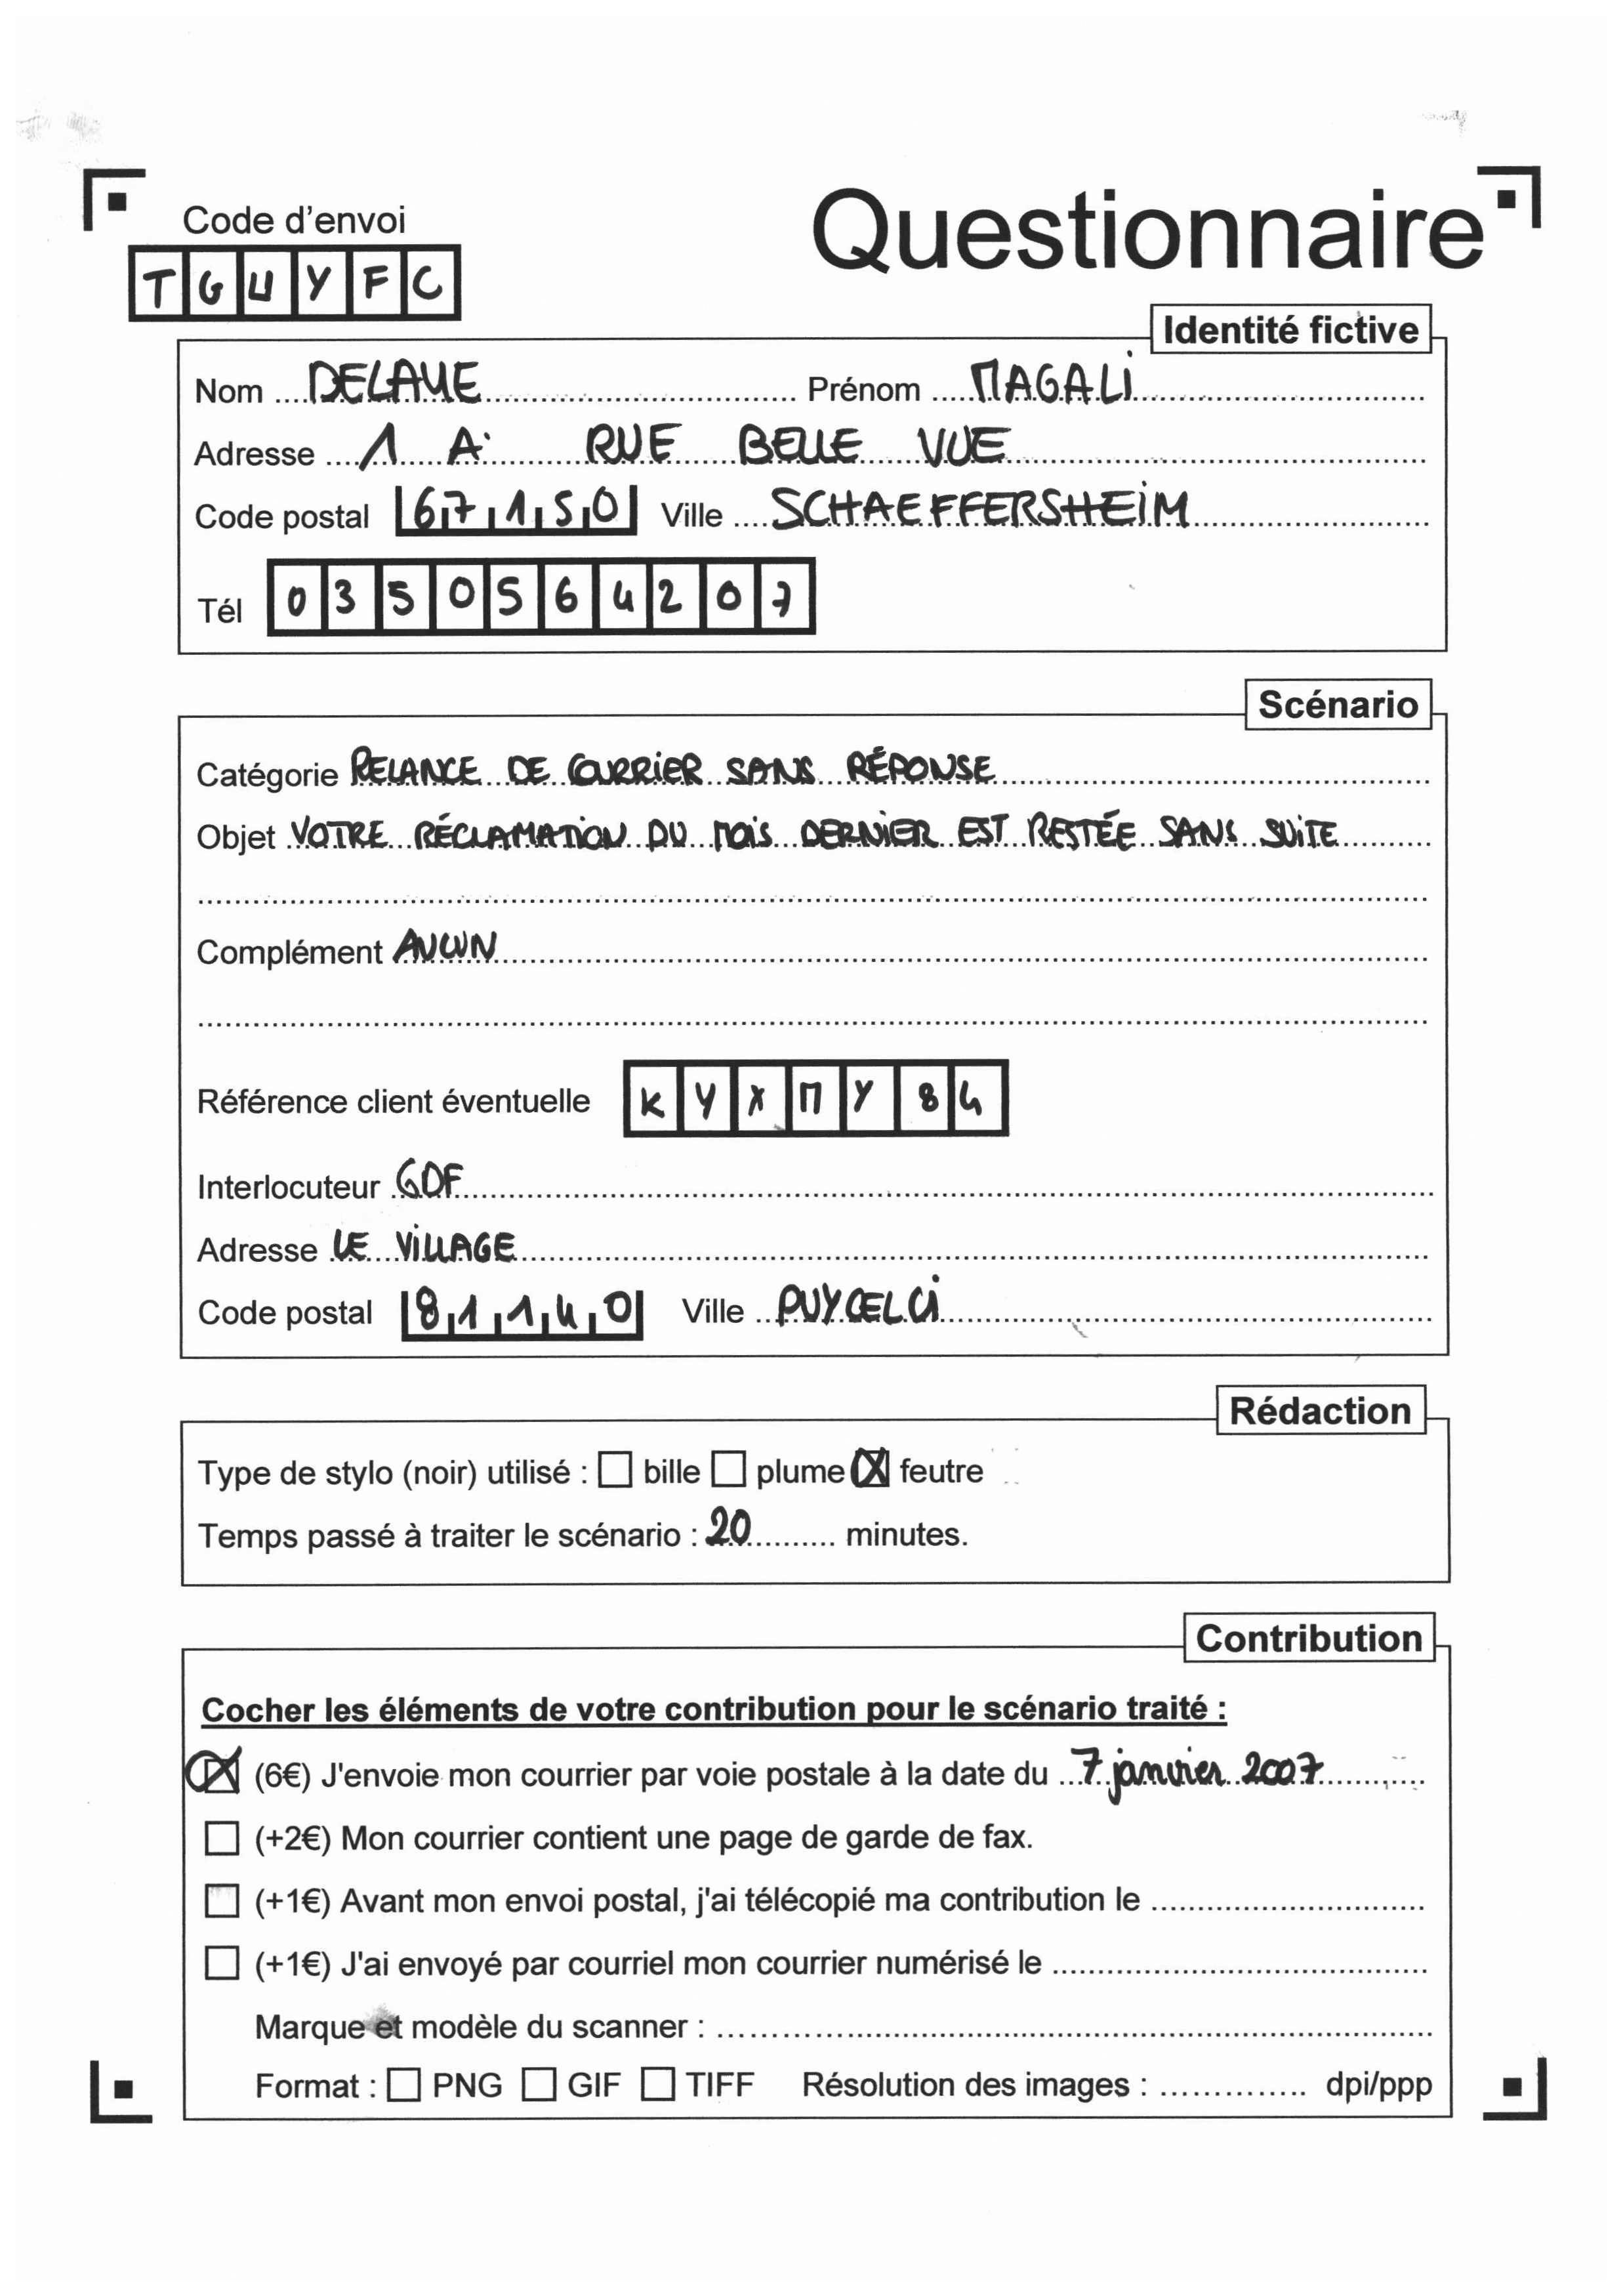 Questionnaire
Code d'envoi
TGUYFC
Identité fictive
Nom DELAUE Prénom MAGALI
Adresse 1 A RUE BELLE VUE
Code postal 67150 Ville SCHAEFFERSHEIM
Tél 0350564207
Scénario
Catégorie RELANCE DE COURRIER SANS RÉPONSE
Objet VOTRE RÉCLAMATION DU MOIS DERNIER EST RESTÉE SANS SUITE
Complément AUCUN
Référence client éventuelle KYXMY84
Interlocuteur GDF
Adresse LE VILLAGE
Code postal 81140 Ville PUYCELCI
Rédaction
Type de stylo (noir) utilisé : bille plume feutre
Temps passé à traiter le scénario : 20 minutes.
Contribution
Cocher les éléments de votre contribution pour le scénario traité :
(6€) J'envoie mon courrier par voie postale à la date du 7 janvier 2007
(+2€) Mon courrier contient une page de garde de fax.
(+1€) Avant mon envoi postal, j'ai télécopié ma contribution le
(+1€) J'ai envoyé par courriel mon courrier numérisé le
Marque et modèle du scanner :
Format : PNG GIF TIFF Résolution des images : dpi/ppp